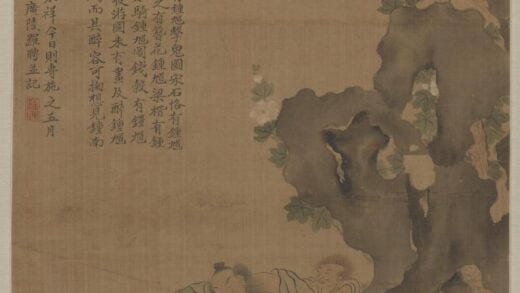 鍾馗擊鬼圖宋石恪有鍾馗
之有簪花鍾馗梁楷有鍾
騎鍾馗圖錢穀有鍾馗
圖未有畫及醉鍾馗
而其醉容可掬想見鍾南
祥今日則專施之五月
廣陵羅聘並記